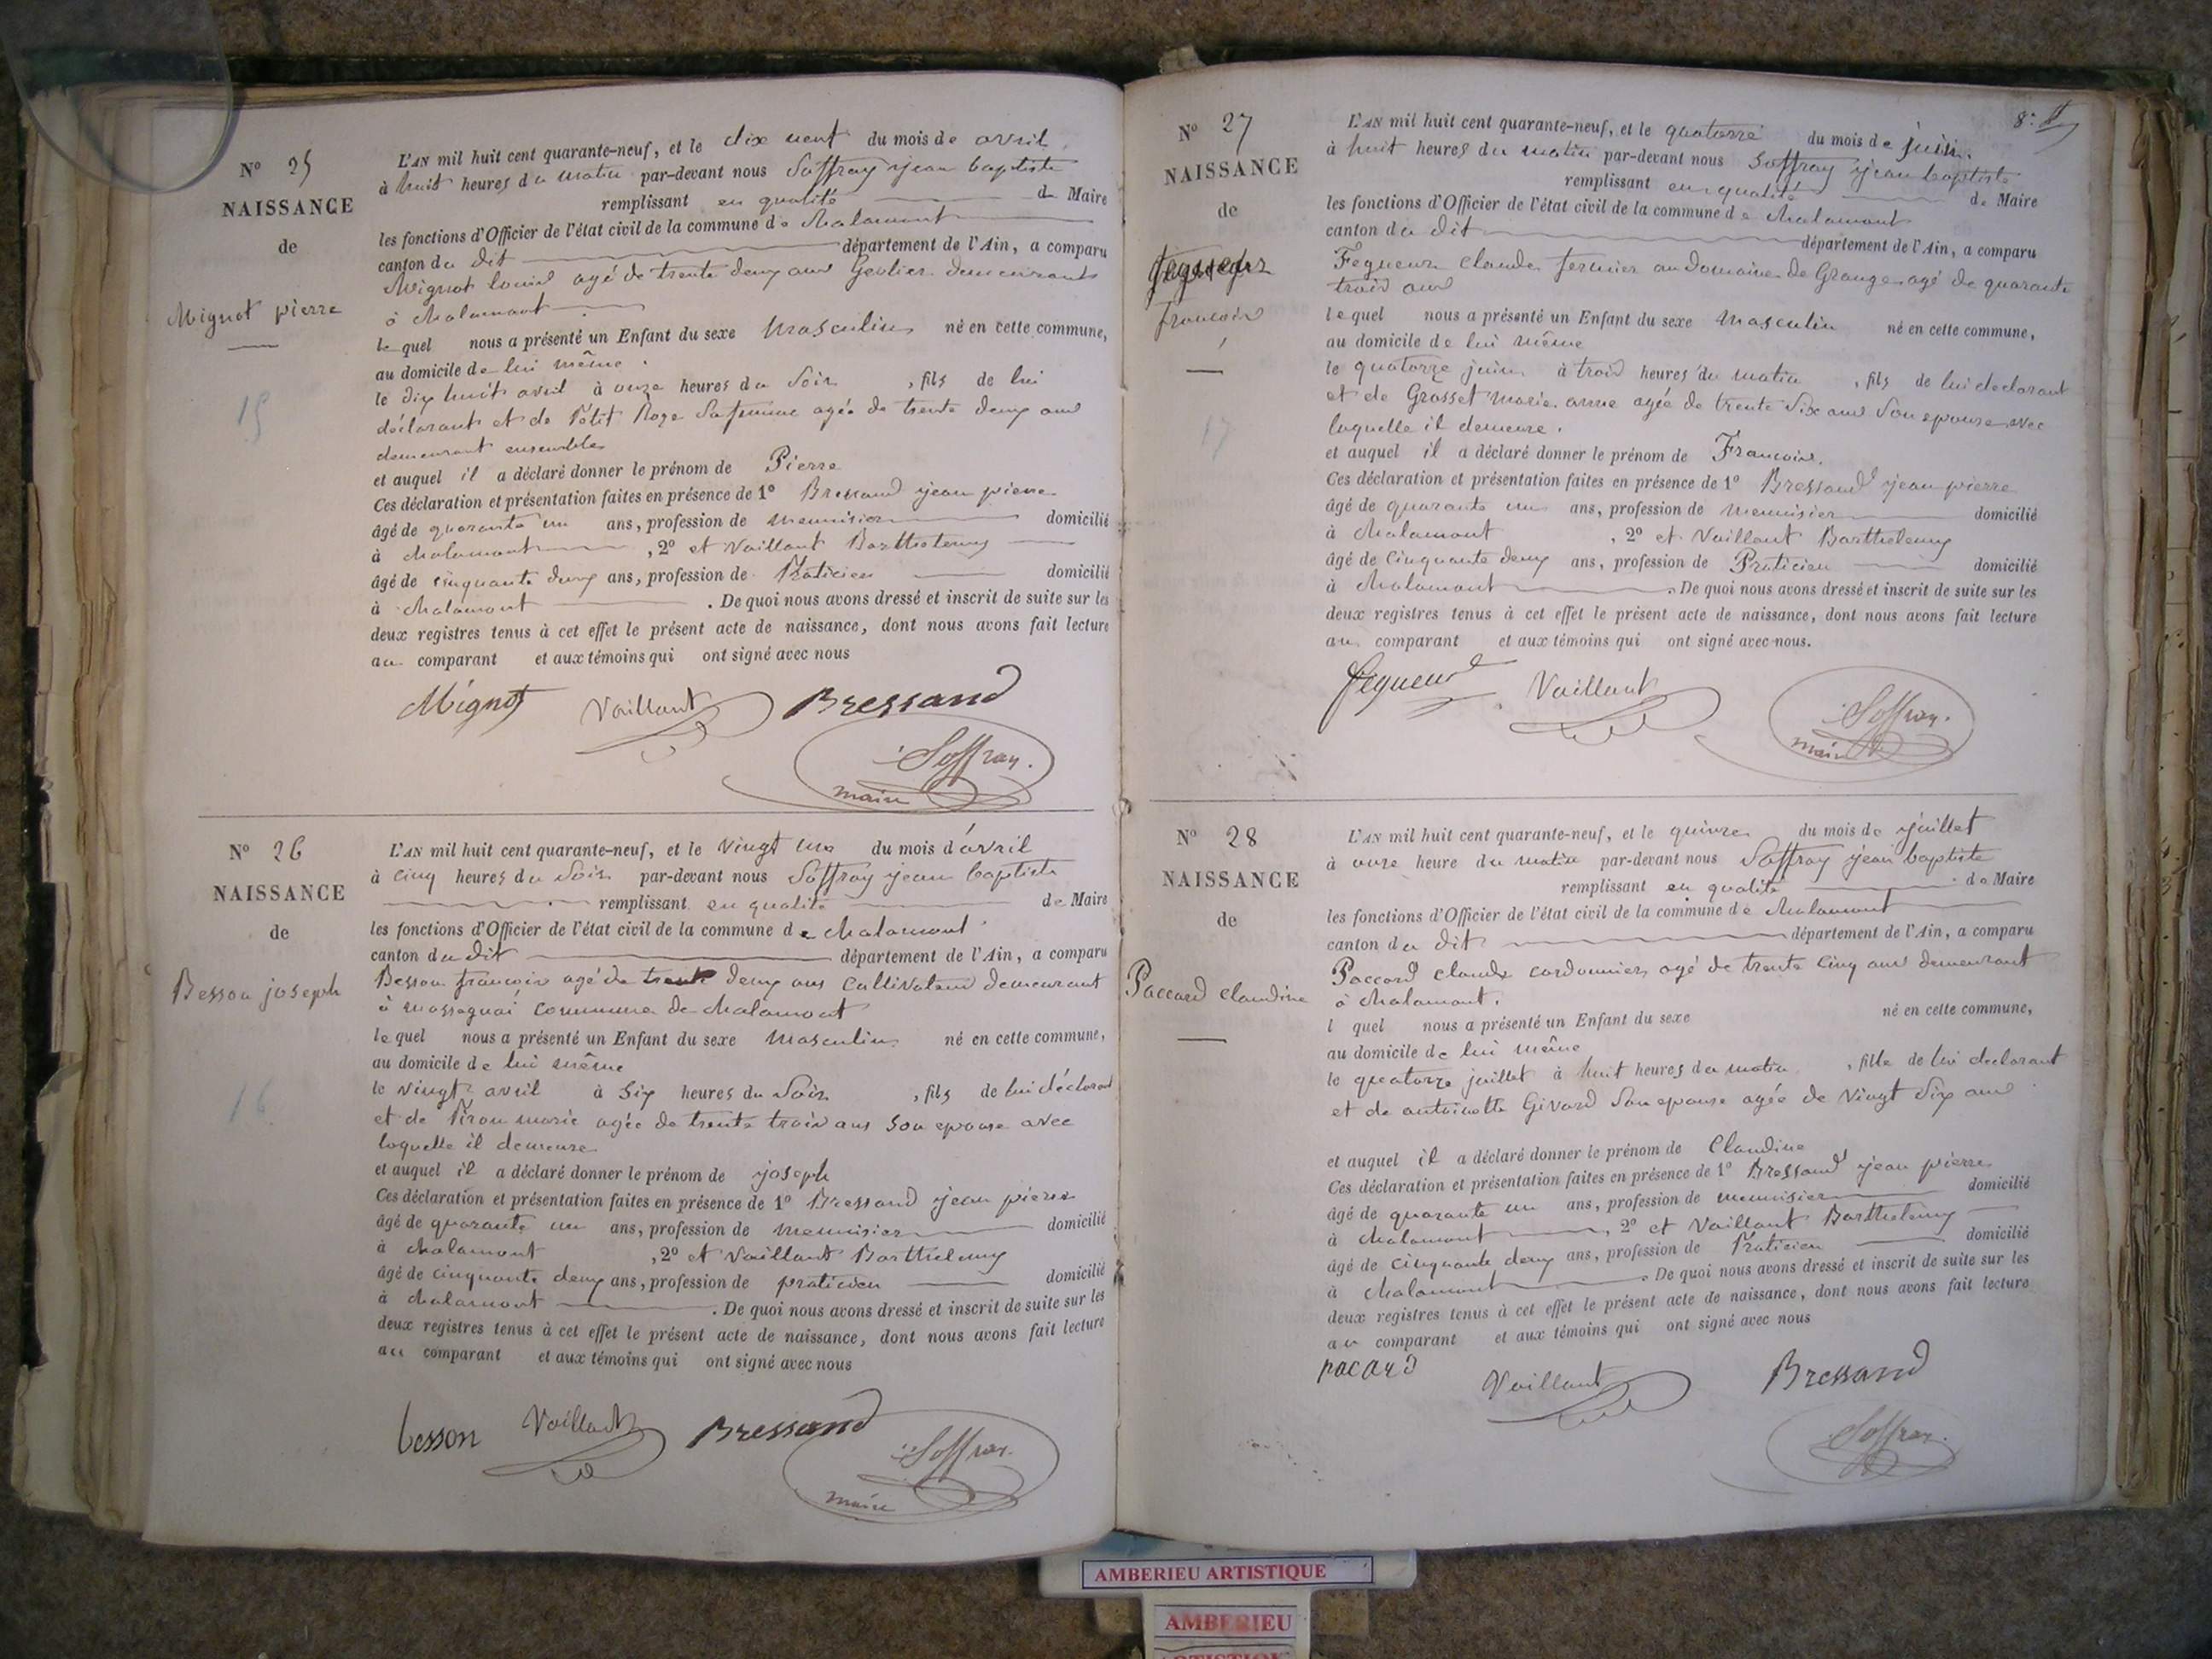 N° 25
NAISSANCE
de
Mignot pierre
15
L'AN mil huit cent quarante-neuf, et le dix neuf du mois de avril
à huit heures du matin par-devant nous Saffray jean baptiste
remplissant en qualité de Maire
les fonctions d'Officier de l'état civil de la commune de chalamont
canton du dit département de l'Ain, a comparu
Mignot louis agé de trente deux ans Geolier demeurant
à chalamont
lequel nous a présenté un Enfant du sexe Masculin né en cette commune,
au domicile de lui même
le dix huit avril à onze heures du Soir, fils de lui
déclarant et de Petit Roze Sa femme agée de trente deux ans
demeurant ensembles
et auquel il a déclaré donner le prénom de Pierre
Ces déclaration et présentation faites en présence de 1° Bressand jean pierre
âgé de quarante un ans, profession de menuisier domicilié
à chalamont, 2° et Vaillant Barthelemy
âgé de cinquante deux ans, profession de Praticien domicilié
à chalamont. De quoi nous avons dressé et inscrit de suite sur les
deux registres tenus à cet effet le présent acte de naissance, dont nous avons fait lecture
au comparant et aux témoins qui ont signé avec nous
Mignot Vaillant Bressand
Saffray
maire
N° 26
NAISSANCE
de
Besson joseph
16
L'AN mil huit cent quarante-neuf, et le vingt un du mois d'avril
à cinq heures du Soir par-devant nous Saffray jean baptiste
remplissant en qualité de Maire
les fonctions d'Officier de l'état civil de la commune de chalamont
canton du dit département de l'Ain, a comparu
Besson francois agé de trente deux ans Cultivateur demeurant
à commune de chalamont
lequel nous a présenté un Enfant du sexe Masculin né en cette commune,
au domicile de lui même
le vingt avril à Six heures du Soir, fils de lui déclarant
et de Piron marie agée de trente trois ans Son epouse avec
laquelle il demeure
et auquel il a déclaré donner le prénom de joseph
Ces déclaration et présentation faites en présence de 1° Bressand jean pierre
âgé de quarante un ans, profession de menuisier domicilié
à chalamont, 2° et Vaillant Barthelemy
âgé de cinquante deux ans, profession de praticien domicilié
à chalamont. De quoi nous avons dressé et inscrit de suite sur les
deux registres tenus à cet effet le présent acte de naissance, dont nous avons fait lecture
au comparant et aux témoins qui ont signé avec nous
besson Vaillant Bressand
Saffray
maire
8.
N° 27
NAISSANCE
de
fegueur
francois
17
L'AN mil huit cent quarante-neuf, et le quatorze du mois de juin.
à huit heures du matin par-devant nous Saffray jean baptiste
remplissant en qualité de Maire
les fonctions d'Officier de l'état civil de la commune de chalamont
canton du dit département de l'Ain, a comparu
Fegueur claude fermier au Domaine de Grange agé de quarante
trois ans
lequel nous a présenté un Enfant du sexe Masculin né en cette commune,
au domicile de lui même
le quatorze juin à trois heures du matin, fils de lui declarant
et de Grosset Marie anne agée de trente Six ans Son epouse avec
laquelle il demeure.
et auquel il a déclaré donner le prénom de Francois.
Ces déclaration et présentation faites en présence de 1° Bressand jean pierre
âgé de quarante un ans, profession de menuisier domicilié
à chalamont, 2° et Vaillant Barthelemy
âgé de cinquante deux ans, profession de Praticien domicilié
à chalamont. De quoi nous avons dressé et inscrit de suite sur les
deux registres tenus à cet effet le présent acte de naissance, dont nous avons fait lecture
au comparant et aux témoins qui ont signé avec nous.
fegueur Vaillant
Saffray
maire
N° 28
NAISSANCE
de
Paccard claudine
L'AN mil huit cent quarante-neuf, et le quinze du mois de juillet
à onze heure du matin par-devant nous Saffray jean baptiste
remplissant en qualité de Maire
les fonctions d'Officier de l'état civil de la commune de chalamont
canton du dit département de l'Ain, a comparu
Paccard claude cordonnier agé de trente cinq ans demeurant
à chalamont.
l quel nous a présenté un Enfant du sexe né en cette commune,
au domicile de lui même
le quatorze juillet à huit heures du matin, fille de lui declarant
et de antoinette Givard Son epouse agée de Vingt Six ans
et auquel il a déclaré donner le prénom de Claudine
Ces déclaration et présentation faites en présence de 1° Bressand jean pierre
âgé de quarante un ans, profession de menuisier domicilié
à chalamont, 2° et Vaillant Barthelemy
âgé de cinquante deux ans, profession de Praticien domicilié
à chalamont. De quoi nous avons dressé et inscrit de suite sur les
deux registres tenus à cet effet le présent acte de naissance, dont nous avons fait lecture
au comparant et aux témoins qui ont signé avec nous
pacard Vaillant Bressand
Saffray
AMBERIEU ARTISTIQUE
AMBERIEU
ARTISTIQUE